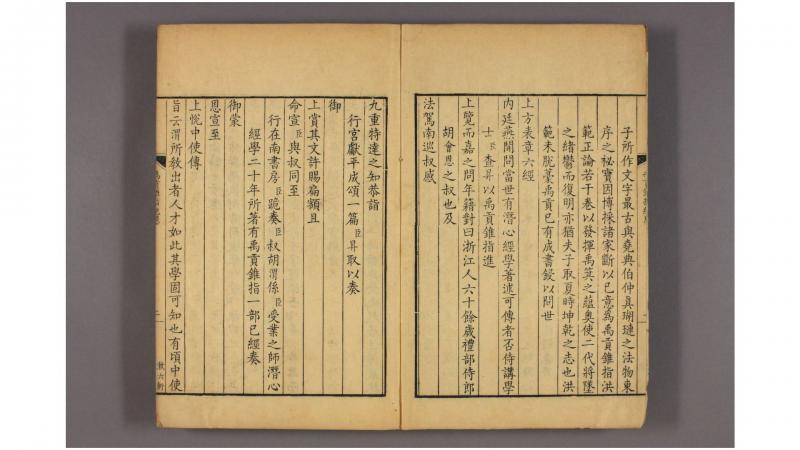 子所作文字最古與堯典伯仲真瑚璉之法物東
序之祕寶因博採諸家斷以己意為禹貢錐指洪
範正論若干卷以發揮禹箕之蘊奥使二代將墜
之緒鬱而復明亦猶夫子取夏時坤乾之志也洪
範未脫藁禹貢已有成書鋟以問世
上方表章六經
內廷燕閒問當世有潛心經學著述可傳者否侍講學
士臣查昇以禹貢錐指進
上覽而嘉之問年籍對曰浙江人六十餘歲禮部侍郎
胡會恩之叔也及
法駕南巡叔感
九重特達之知恭詣
行宮獻平成頌一篇臣昇取以奏
御
上賞其文許賜扁額且
命宣臣與叔同至
行在南書房臣跪奏臣叔胡渭係臣受業之師潛心
經學二十年所著有禹貢錐指一部已經奏
御蒙
恩宣至
上悅中使傳
旨云渭所敎出者人才如此其學固可知也有頃中使
二
漱六軒